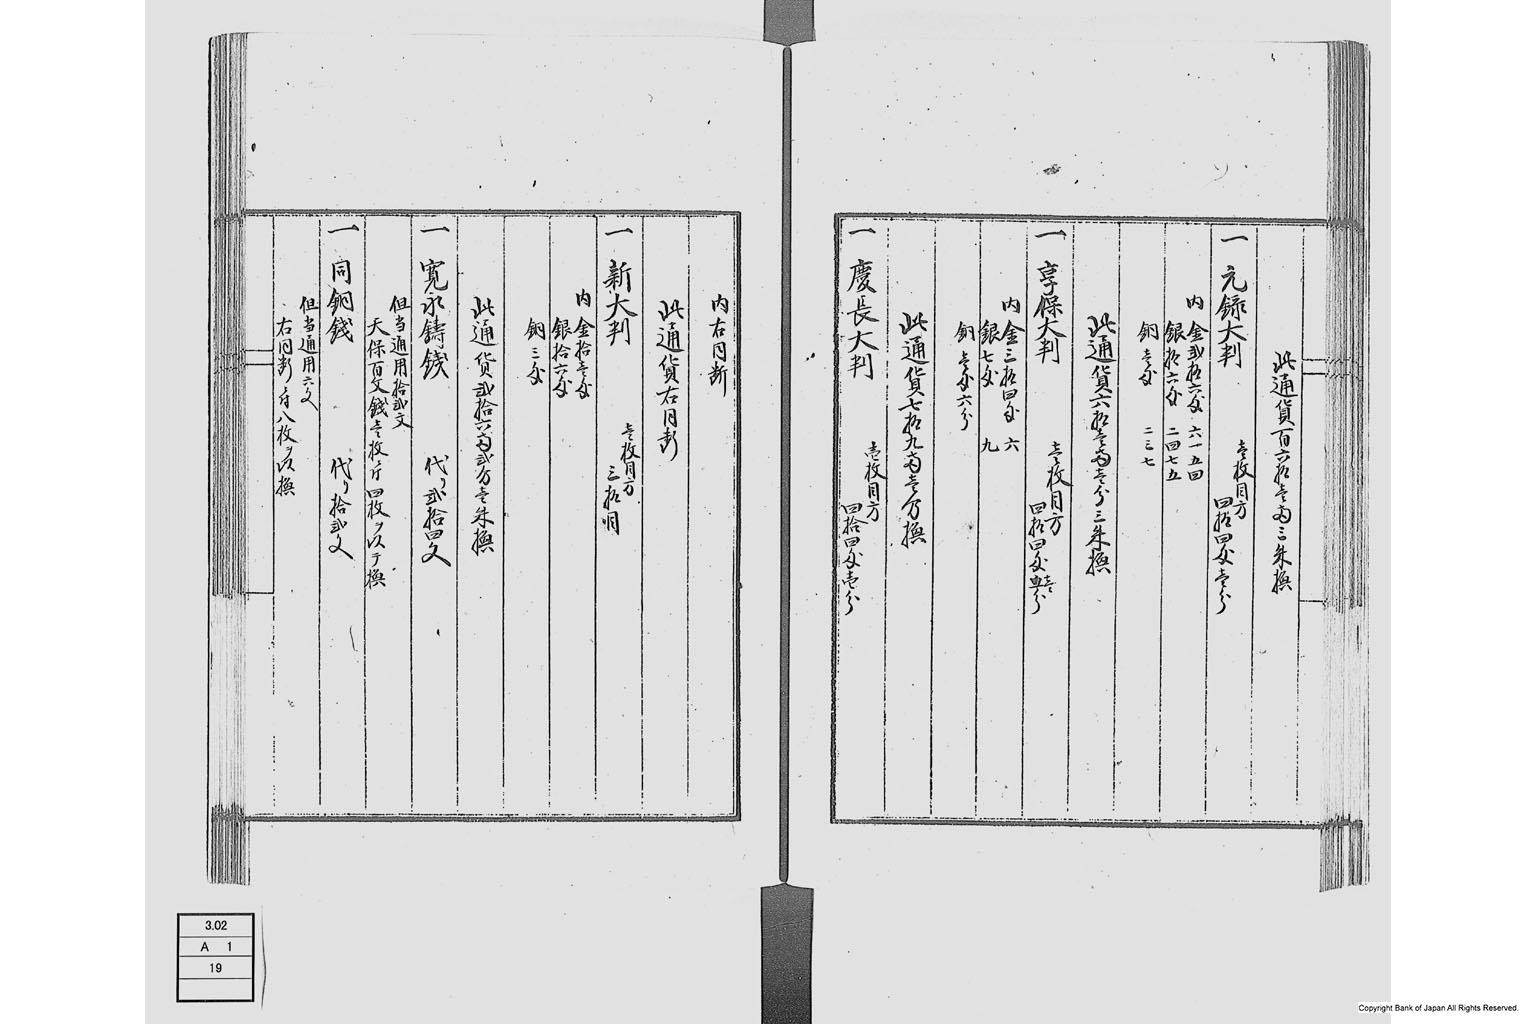 此通貨百六拾壱両三朱換
一 元録大判 壱枚目方 四拾四匁壱分
内 金弐拾六匁 六一五四
銀拾六匁 二四七五
銅壱匁 二三七
此通貨六拾壱両壱分三朱換
一 享保大判 壱枚目方 四拾四匁
内 金三拾四匁 六
銀七匁 九
銅壱匁六分
此通貨七拾九両壱分換
一 慶長大判 壱枚目方 四拾四匁壱分
内右同断
此通貨右同断
一 新大判 壱枚目方 三拾目
内 金拾壱匁
銀拾六匁
銅三匁
此通貨弐拾六両弐分壱朱換
一 寛永鋳銭 代り弐拾四文
但当通用拾弐文
天保百文銭壱枚ニ付四枚ヲ以テ換
一 同銅銭 代り拾弐文
但当通用六文
右同断ニ付八枚ヲ以換
3.02
A 1
19
Copyright Bank of Japan All Rights Reserved.